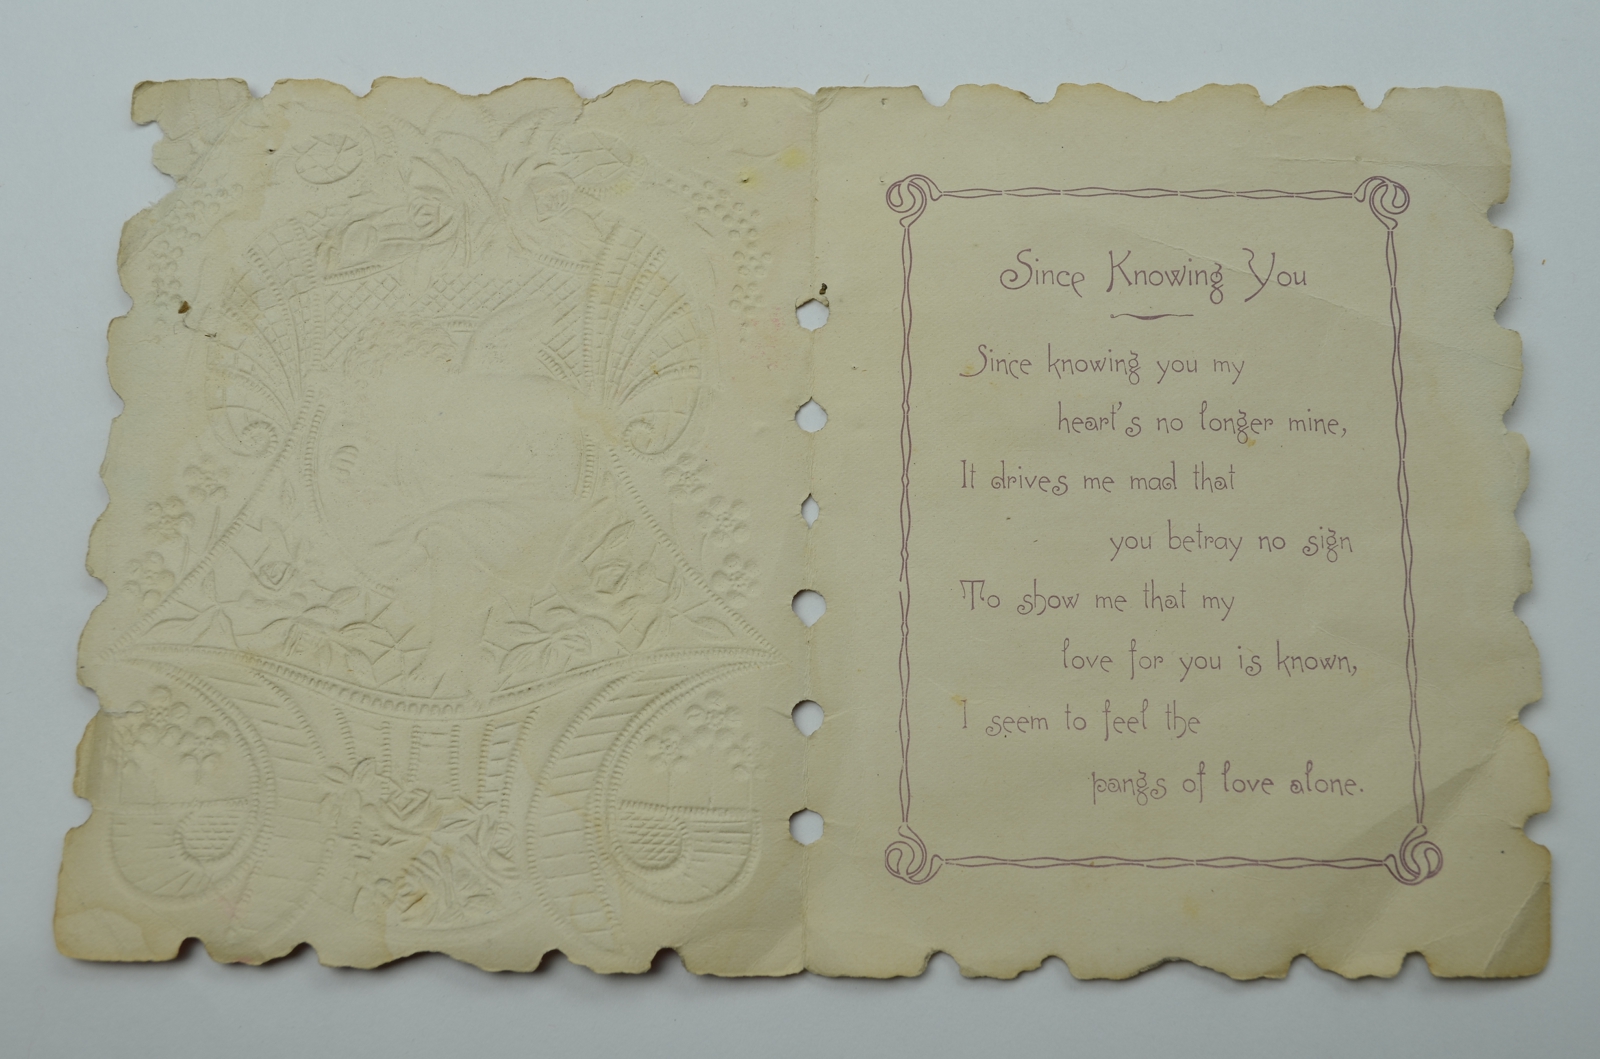 Since Knowing You
Since knowing you my
heart's no longer mine,
It drives me mad that
you betray no sign
To show me that my
love for you is known,
I seem to feel the
pangs of love alone.